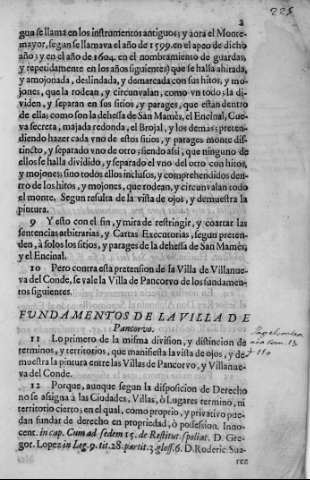 2
225
gua se llama en los instrumentos antiguos; y aora el Monte-
mayor, segun se llamava el año de 1599. en el apeo de dicho
año; y en el año de 1604. en el nombramiento de guardas,
y repetidamente en los años siguientes) que se halla ahitada,
y amojonada, deslindada, y demarcada con sus hitos, y mo-
jones, que la rodean, y circunvalan, como vn todo; la di-
viden, y separan en sus sitios, y parages, que estàn dentro
de ella; como son la dehessa de San Mamès, el Encinal, Cue-
va secreta, majada redonda, el Brojal, y los demas; preten-
diendo hazer cada vno de estos sitios, y parages monte dis-
tincto, y separado vno de otro; siendo assi, que ninguno de
ellos se halla dividido, y separado el vno del otro con hitos,
y mojones; sino todos ellos inclusos, y comprehendidos den-
tro de los hitos, y mojones, que rodean, y circunvalan todo
el monte. Segun resulta de la vista de ojos, y demuestra la
pintura.
9 Y esto con el fin, y mira de restringir, y coartar las
sentencias arbitrarias, y Cartas Executorias, segun preten-
den, à solos los sitios, y parages de la dehessa de San Mamès,
y el Encinal.
10 Pero contra esta pretension de la Villa de Villanue-
va del Conde, se vale la Villa de Pancorvo de los fundamen-
tos siguientes.
FUNDAMENTOS DE LA VILLA DE
Pancorvo.
11 Lo primero de la misma division, y distincion de
terminos, y territorios, que manifiesta la vista de ojos, y de-
muestra la pintura entre las Villas de Pancorvo, y Villanue-
va del Conde.
12 Porque, aunque segun la disposicion de Derecho
no se assigna à las Ciudades, Villas, ò Lugares termino, ni
territorio cierto; en el qual, como proprio, y privativo pue-
dan fundar de derecho en propriedad, ò possession. Inno-
cent. in cap. Cum ad sedem 15. de Restitut. spoliat. D. Gre-
gor. Lopez in Leg. 9. tit. 28. partit. 3. gloss. 6. D. Roderic. Sua-
rez